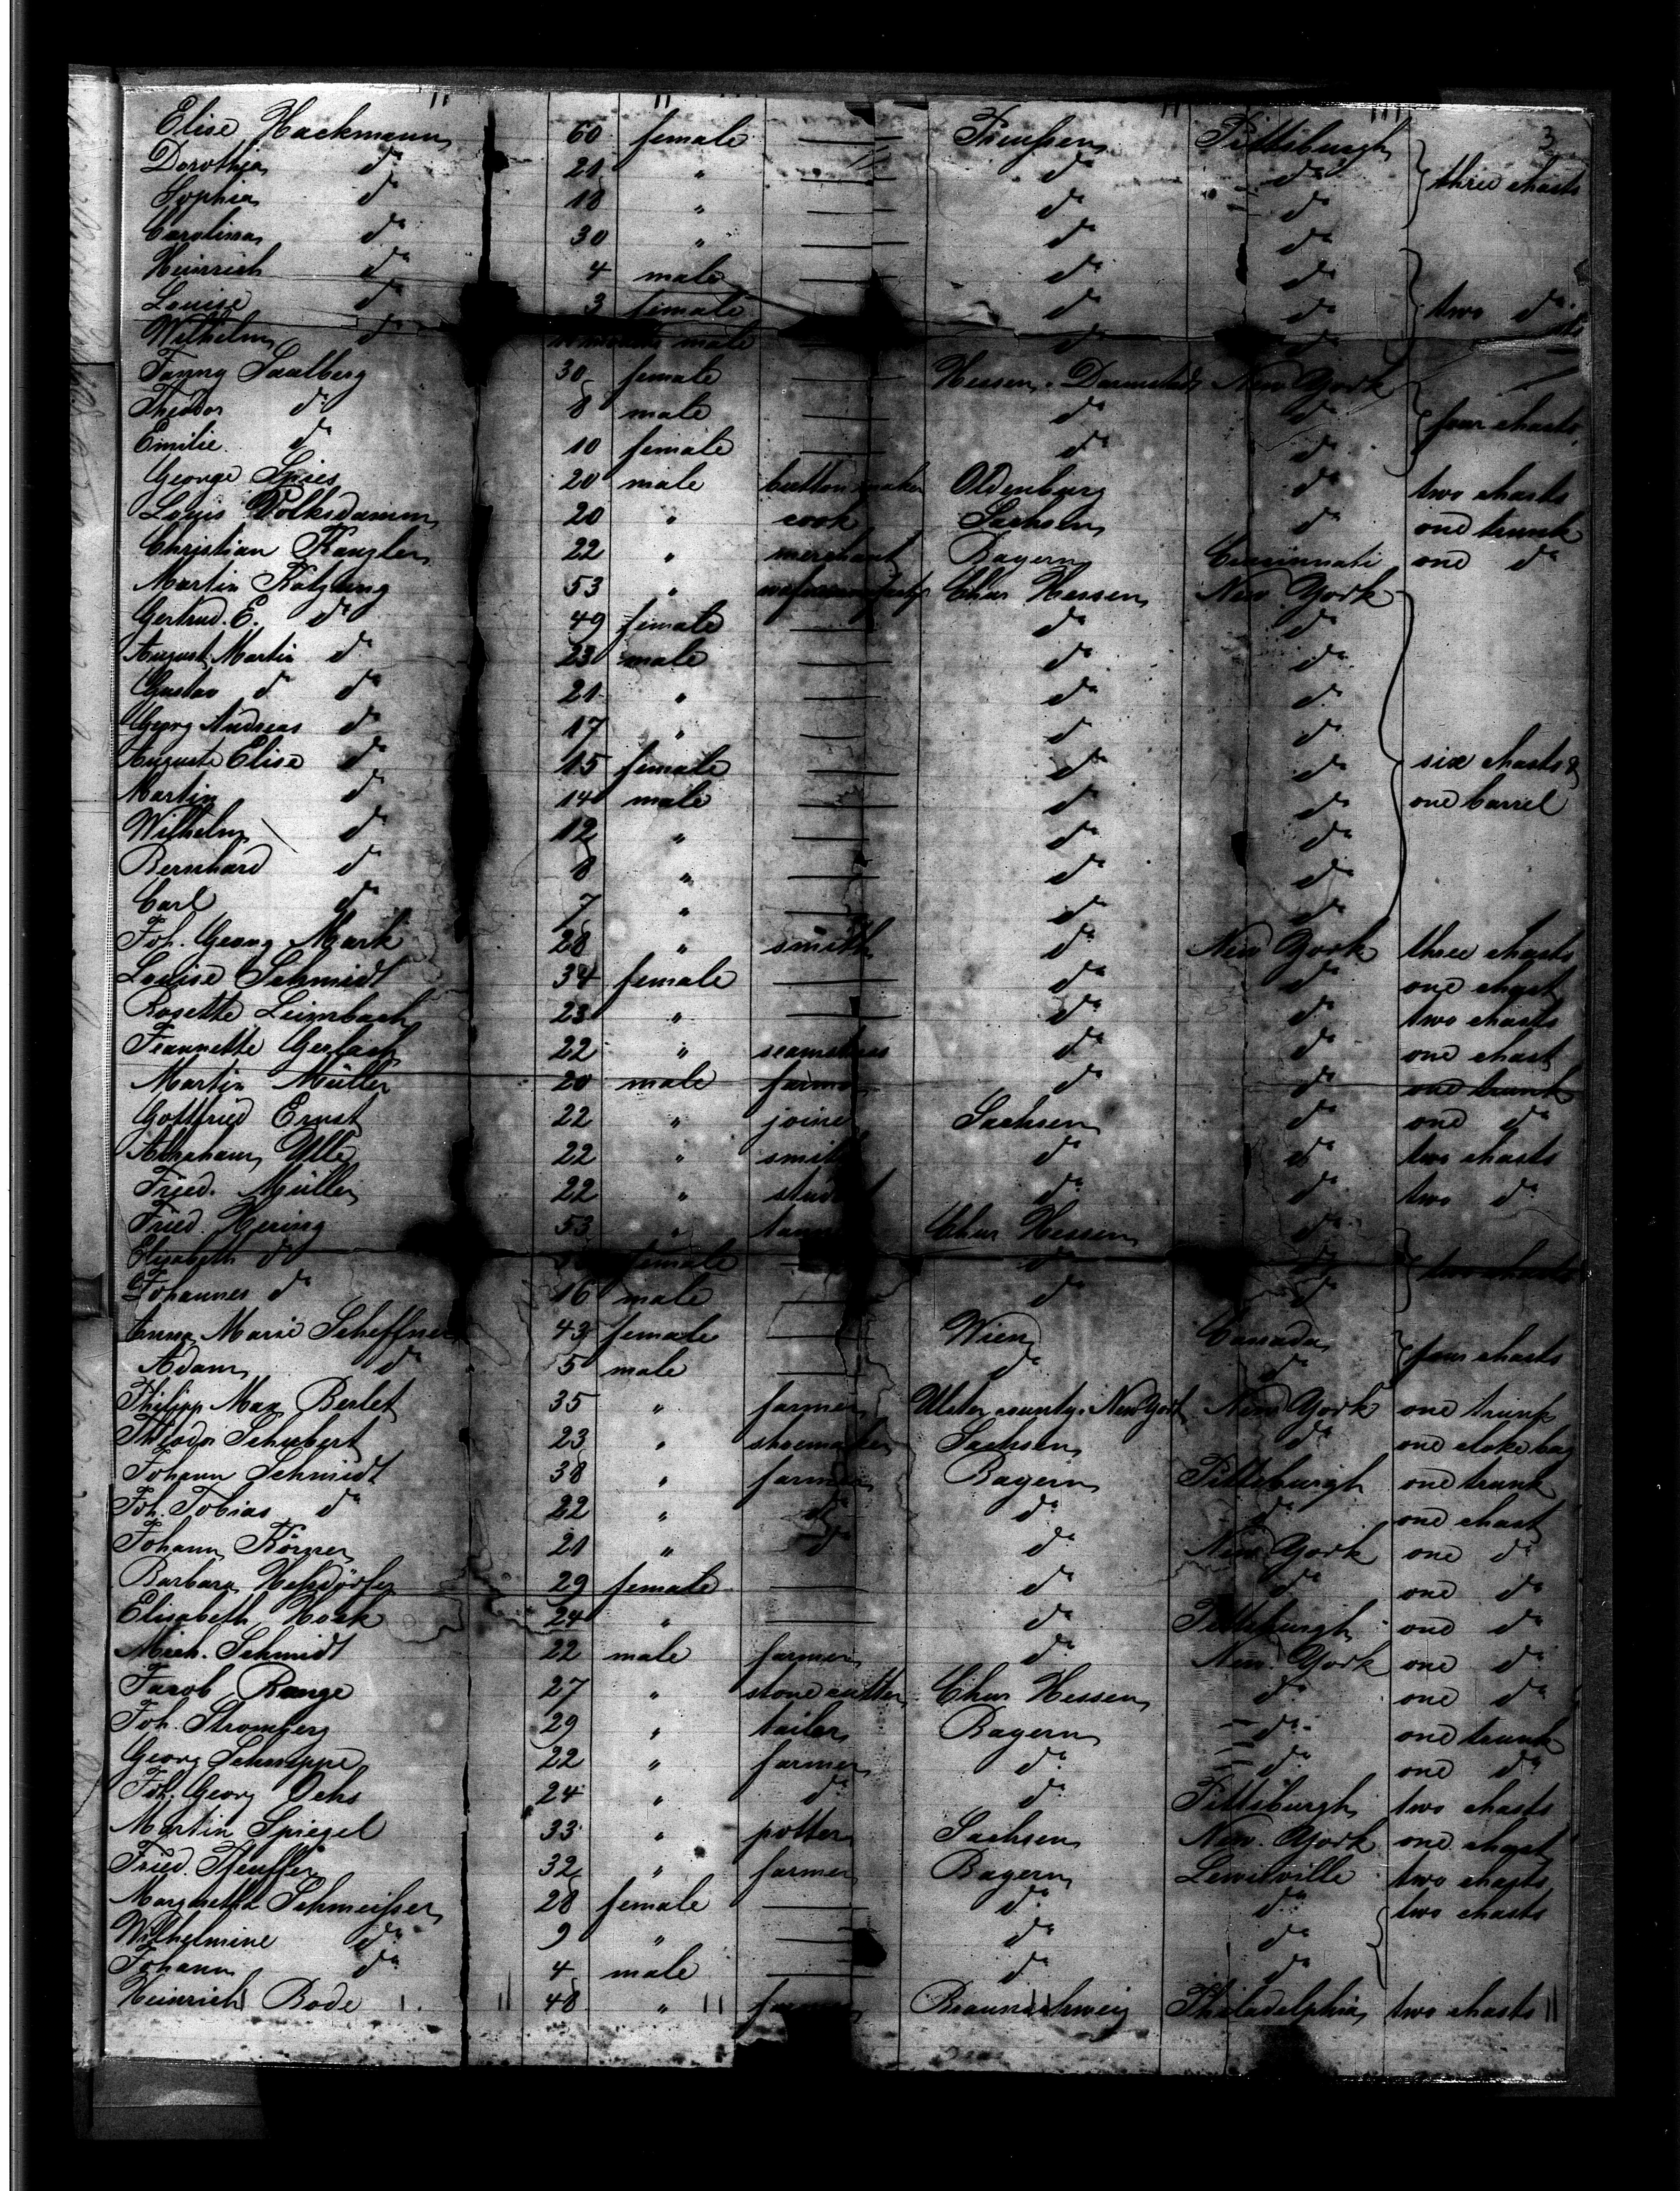 3
Elise Hackmann 60 female — Preußen Pittsburgh
Dorothea do 21 " — do do three chasts
Sophia do 18 " — do do
Carolina do 30 " — do do
Heinrich do 4 male — do do
Louise do 3 female — do do two do
Wilhelm do months male — do do
Fanny Saalberg 30 female — Hessen-Darmstadt New York
Theodor do 8 male — do do four chasts
Emilie do 10 female — do do
George Spies 20 male button maker Oldenburg do two chasts
Louis Volksdamm 20 " cook Sachsen do one trunk
Christian Kanzler 22 " merchant Bayern Cincinnati one do
Martin 53 " Chur Hessen New York
Gertrud. E. do 49 female — do do
August Martin do 23 male — do do
Gustav d do 21 " — do do
Georg Andreas do 17 " — do do
Auguste Elise do 15 female — do do six chasts &
Martin do 14 male — do do one barrel
Wilhelm do 12 " — do do
Bernhard do 8 " — do do
Carl do 7 " — do do
Joh. Georg Mark 28 " smith do New York three chasts
Louise Schmidt 34 female — do do one chast
Rosette Leimbach 23 " — do do two chasts
Jeannette Gerlach 22 " seamstress do do one chast
Martin Müller 20 male farmer do do one trunk
Gottfried Ernst 22 " joiner Sachsen do one do
Abraham 22 " smith do do two chasts
Fried. Müller 22 " do do two do
Fried. Hering 53 " Chur Hessen do
Elisabeth do female — do do two chasts
Johannes do 16 male — do do
Anna Marie Scheffner 43 female — Wien Canada four chasts
Adam do 5 male — do do
Philipp Max Berlet 35 " farmer Ulster county. New York New York one trunk
Theodor Schubert 23 " shoemaker Sachsen do one cloke bag
Johann Schmidt 38 " farmer Bayern Pittsburgh one trunk
Joh. Tobias do 22 " do do do one chast
Johann Körner 21 " do do New York one do
Barbara Heßdörfer 29 female — do do one do
Elisabeth Hock 24 " — do Pittsburgh one do
Mich. Schmidt 22 male farmer do New York one do
Jacob Range 27 " stone cutter Chur Hessen do one do
Joh. Stromberg 29 " tailer Bayern do one trunk
Georg Schnuppe 22 " farmer do do one do
Joh. Georg Ochs 24 " do do Pittsburgh two chasts
Martin Spiegel 33 " potter Sachsen New York one chast
Fried. Pfeuffer 32 " farmer Bayern Lewisville two chasts
Margaretha Schmeißer 28 female — do do two chasts
Wilhelmine do 9 " — do do
Johann do 4 male — do do
Heinrich Bode 48 " farmer Braunschweig Philadelphia two chasts